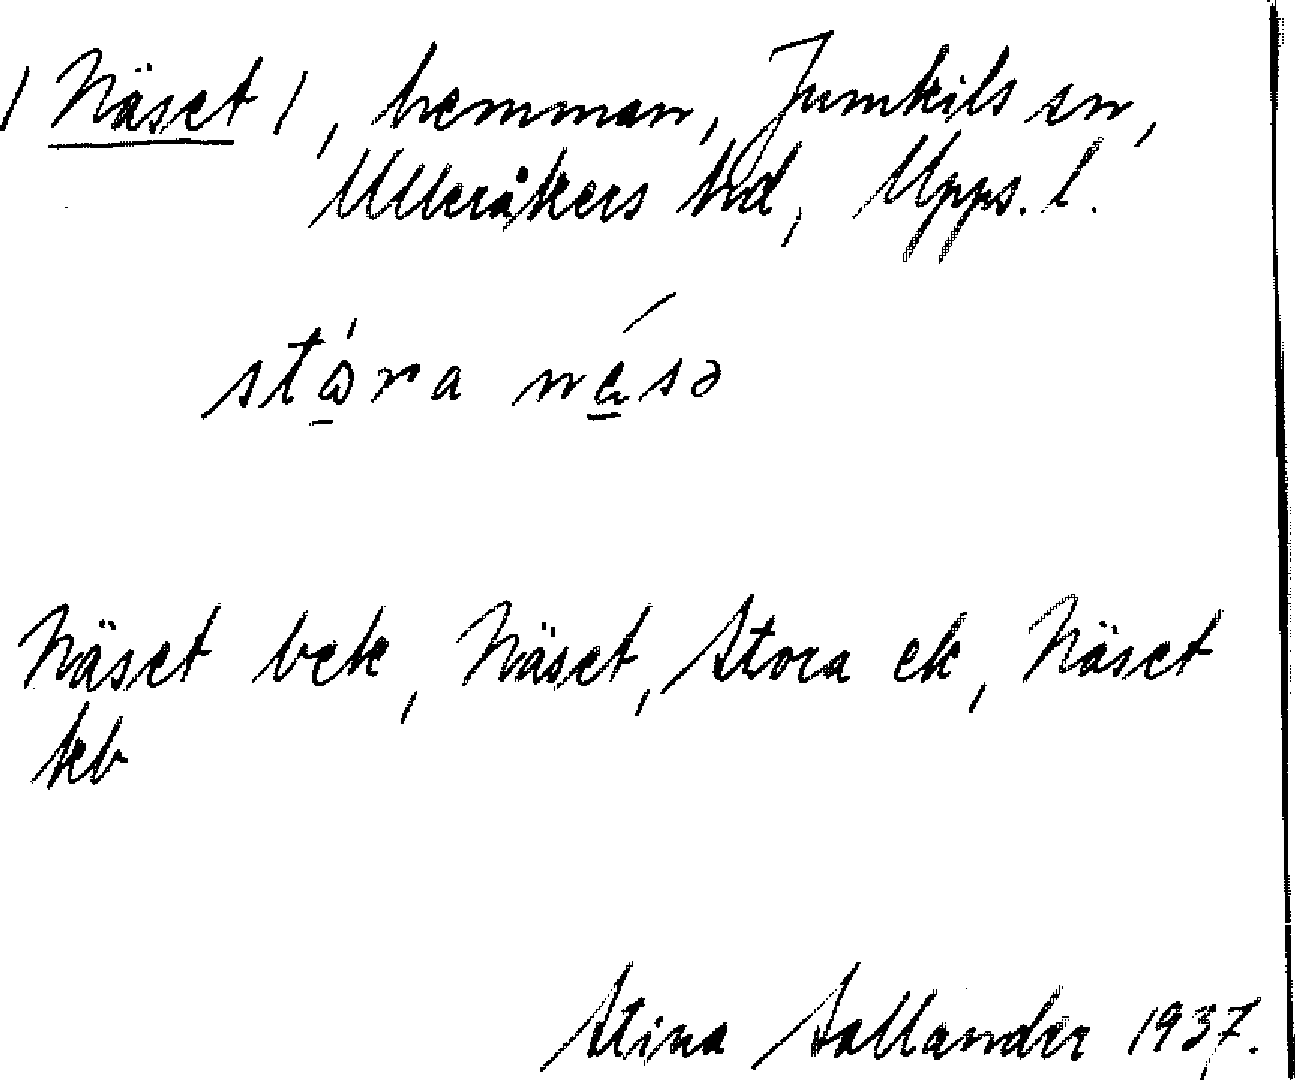 / Näset /, hemman, Jumkils sn,
Ulleråkers hd, Upps. l.
stɷ́ra nǽsə
Näset bek, Näset, Stora ek, Näset
kb
Stina Sollander 1937.